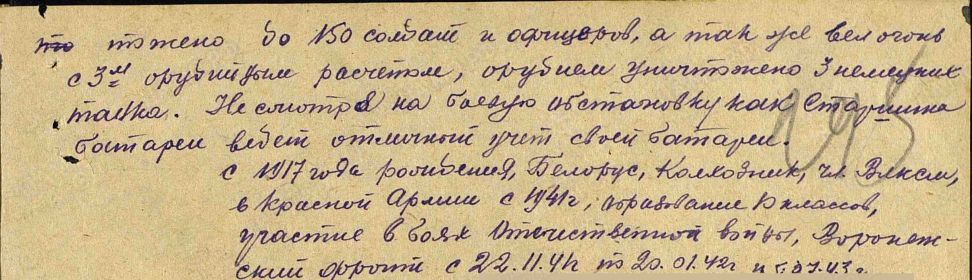 что тожено до 150 солдат и офицеров, а так же вел огонь
с 3м орудийным расчетом, орудием уничтожено 3 немецких
танка. Не смотря на боевую обстановку как Старшина
батареи ведет отличный учет своей батареи.
с 1917 года рождения, Белорус, Колхозник, чл. Влксм,
в Красной Армии с 1941г, образование 10 классов,
участие в боях Отечественной войны, Воронеж-
ский фронт с 22.11.41 по 20.01.42г и с